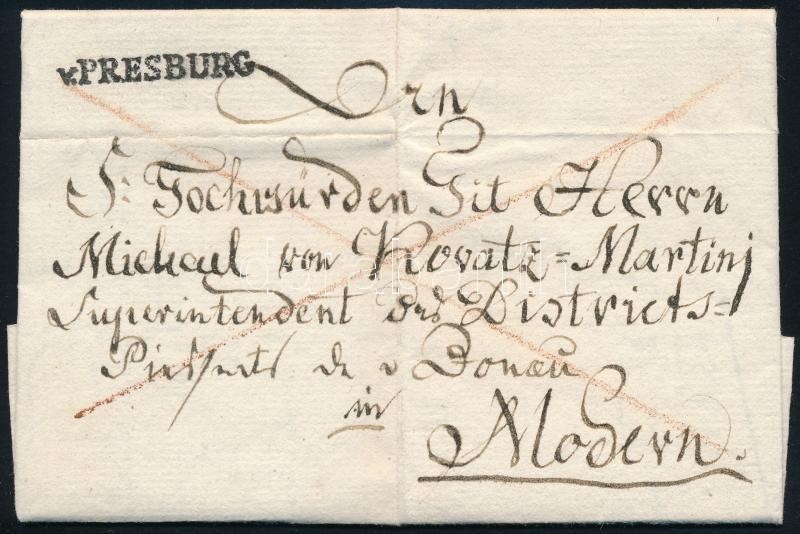 v. PRESBURG
Srn
Sr. Hochwürden Tit Herrn
Michael von Kovatz=Martinj
Superintendent des Districts=
diesseits der Donau
in
Modern.